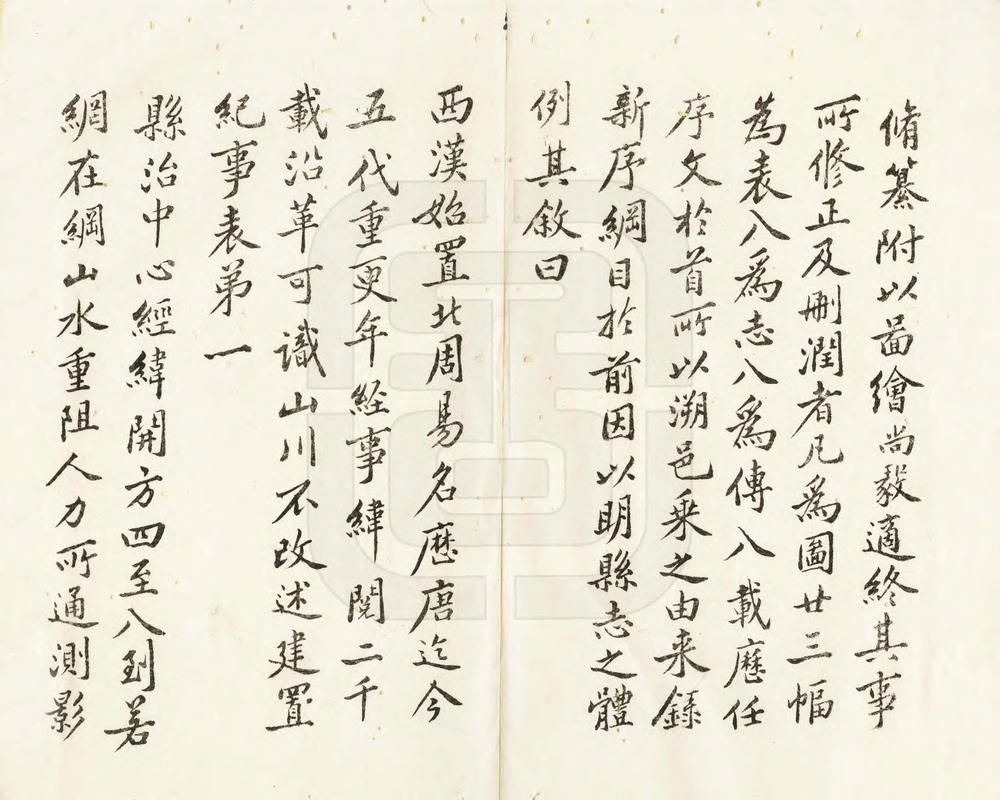 脩纂附以啚繪尚毅適終其事
所修正及刪潤者凡為圖廿三幅
為表八爲志八爲傳八載歷任
序文於首所以溯邑乗之由来錄
新序綱目於前因以明縣志之體
例其敘曰
西漢始置北周易名歷唐迄今
五代重更年経事緯閱二千
載沿革可識山川不改述建置
紀事表苐一
縣治中心經緯開方四至八到若
網在綱山水重阻人力所通測影